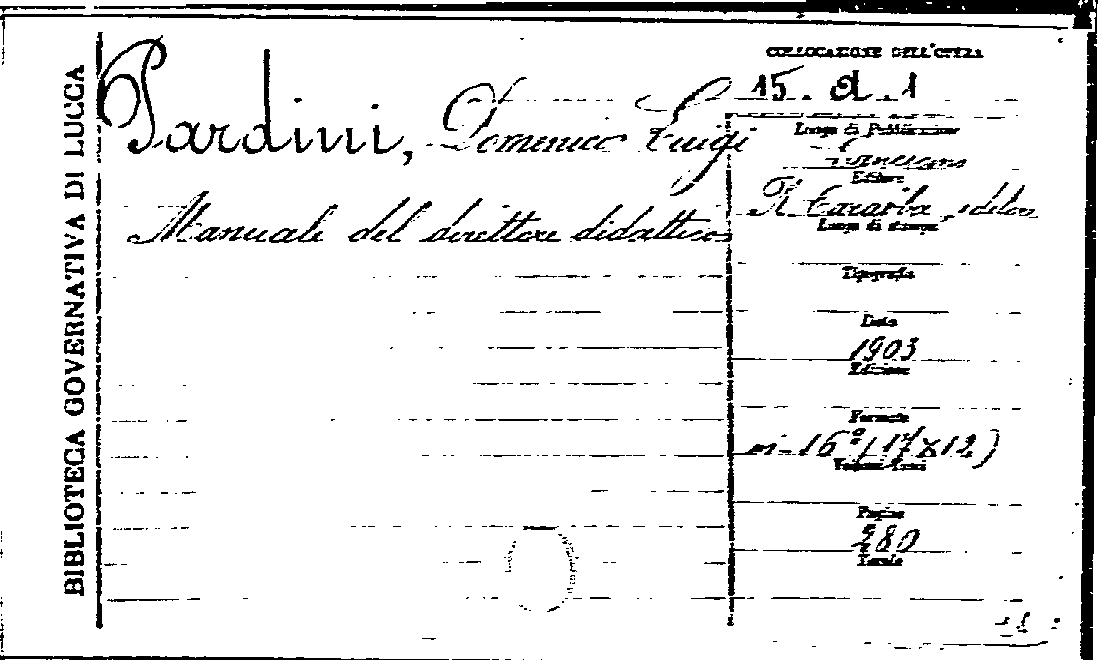 BIBLIOTECA GOVERNATIVA DI LUCCA
Pardini, Domenico Luigi
Manuale del direttore didattico
COLLOCAZIONE DELL'OPERA
15. d. 1
Luogo di Pubblicazione
Lanciano
Editore
R Carabba, editore
Luogo di stampa
Tipografia
Data
1903
Edizione
Formato
in-16° (17x12)
Volumi
Pagine
280
Tavole